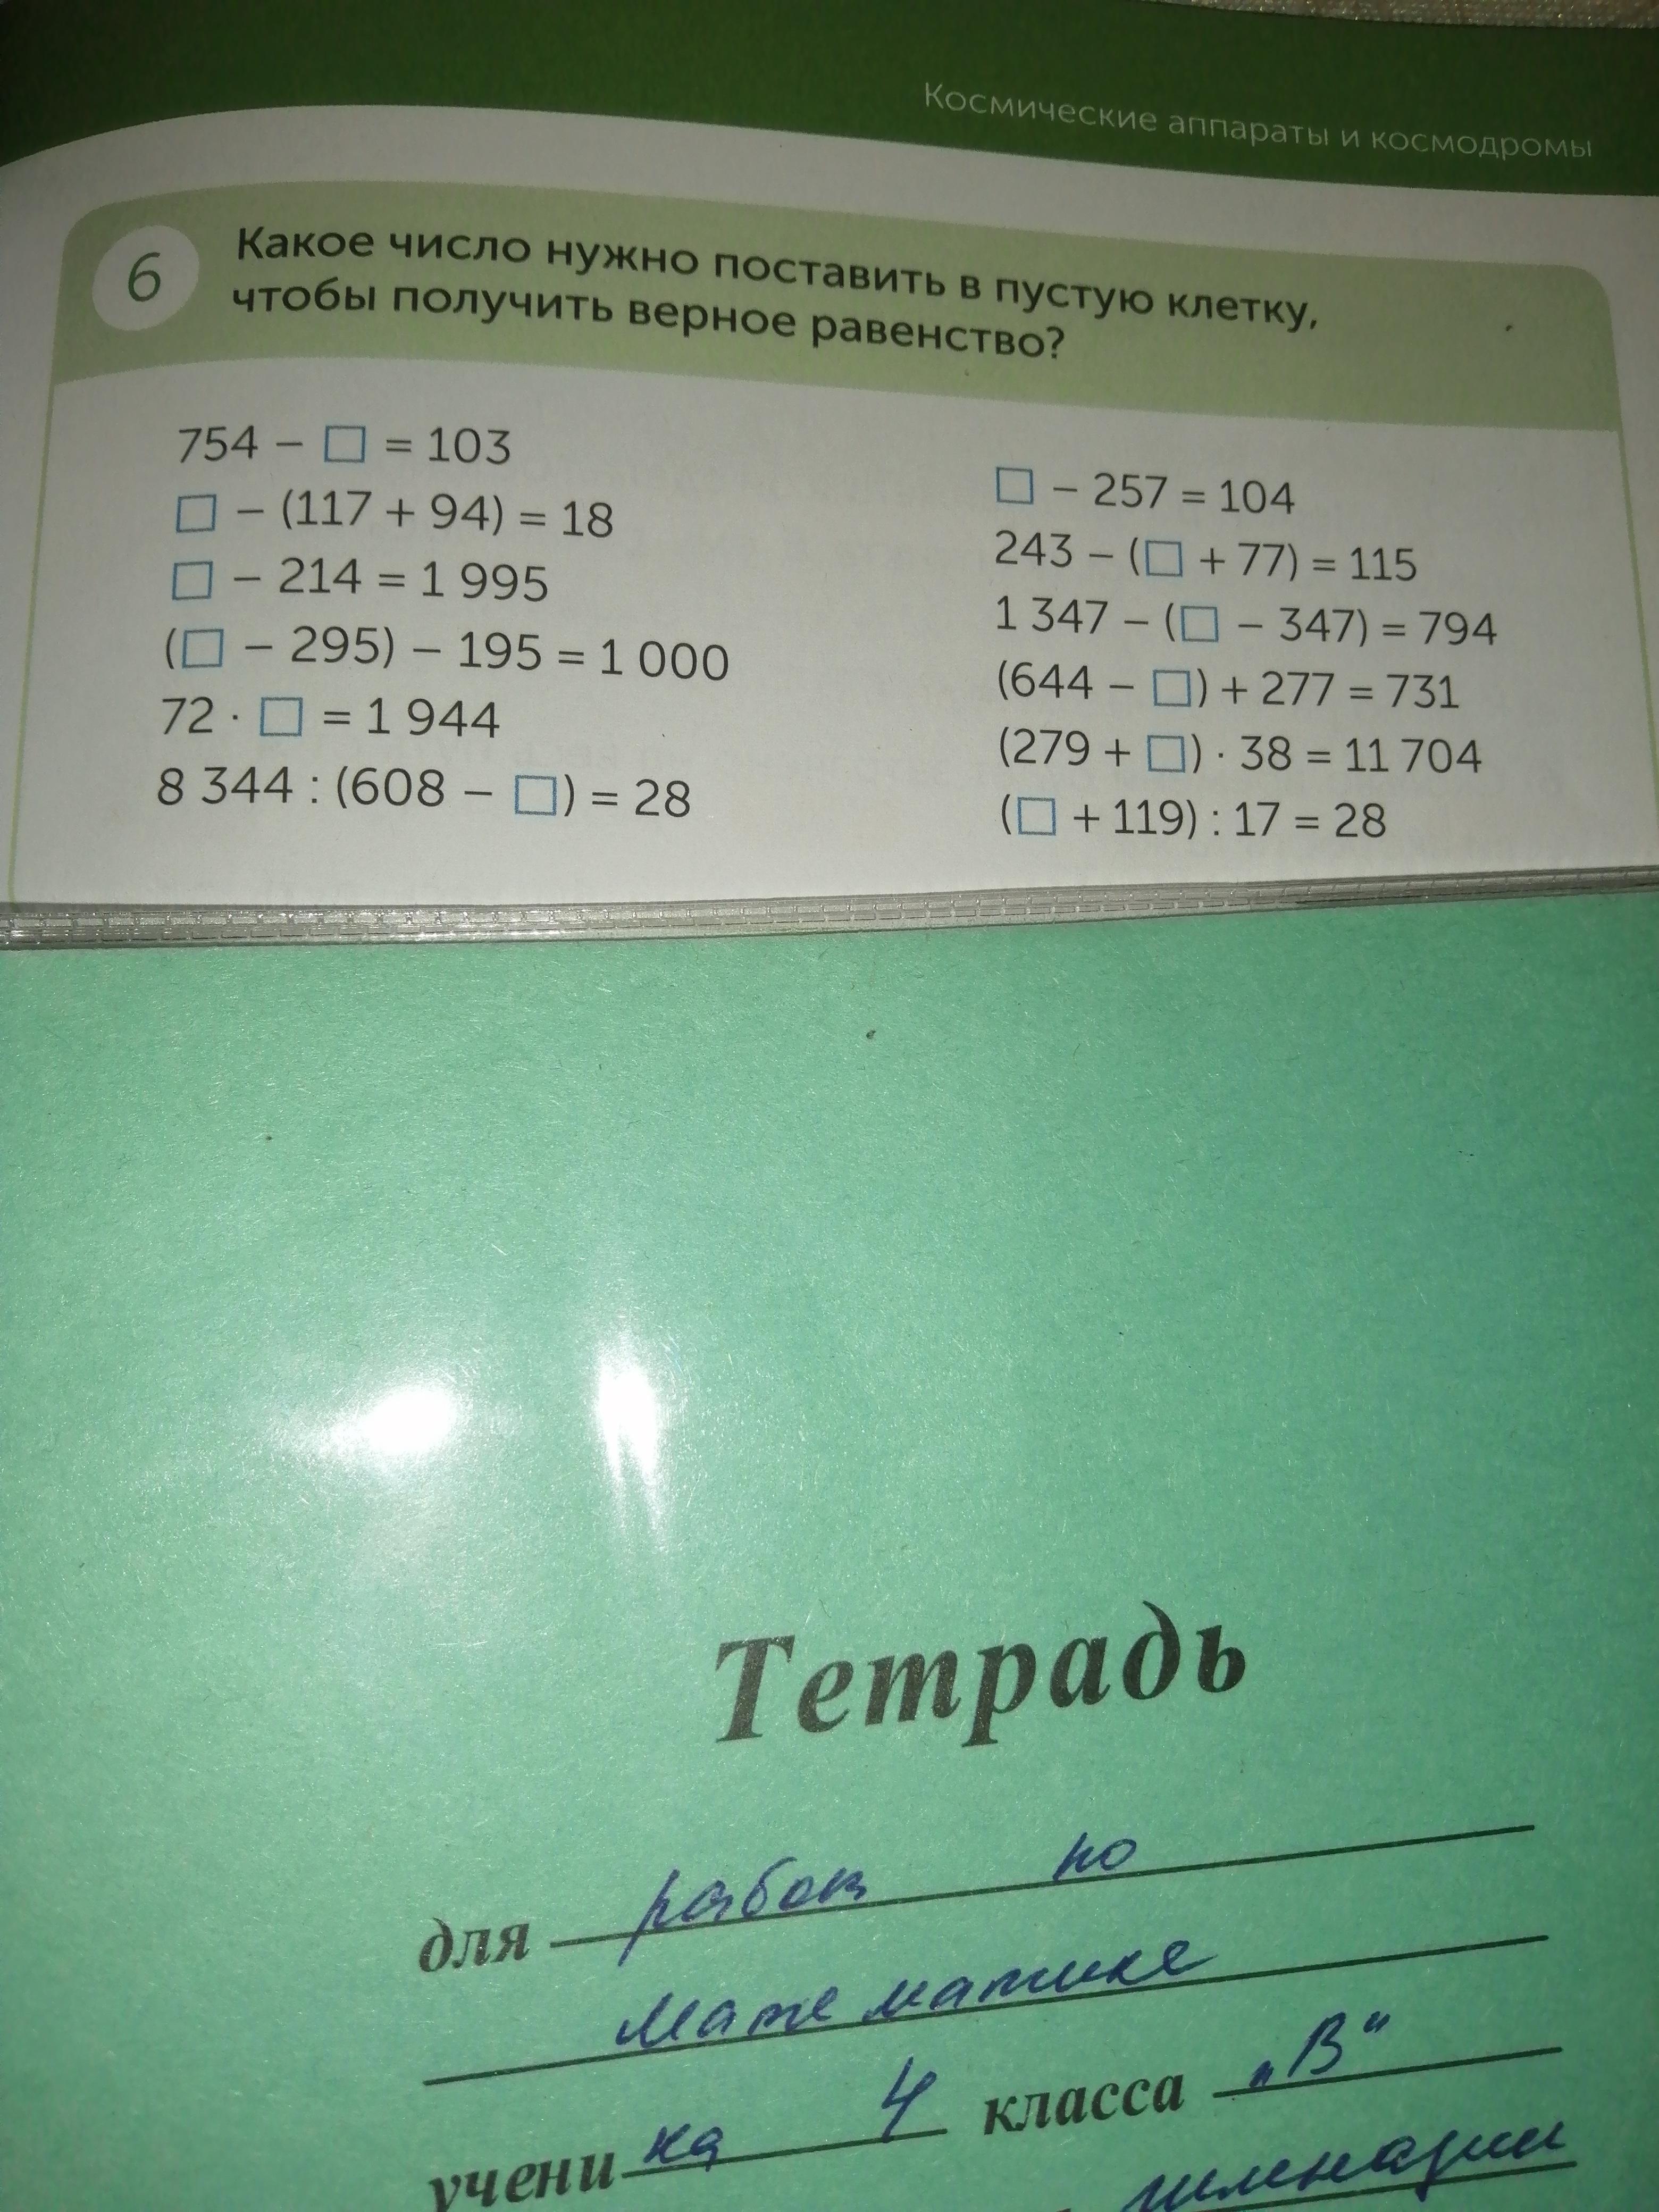 Космические аппараты и космодромы
6
Какое число нужно поставить в пустую клетку,
чтобы получить верное равенство?
754 – □ = 103
□ – (117 + 94) = 18
□ – 214 = 1 995
(□ – 295) – 195 = 1 000
72 · □ = 1 944
8 344 : (608 – □) = 28
□ – 257 = 104
243 – (□ + 77) = 115
1 347 – (□ – 347) = 794
(644 – □) + 277 = 731
(279 + □) · 38 = 11 704
(□ + 119) : 17 = 28
Тетрадь
для работ по
математике
ученика 4 класса „В“
гимназии